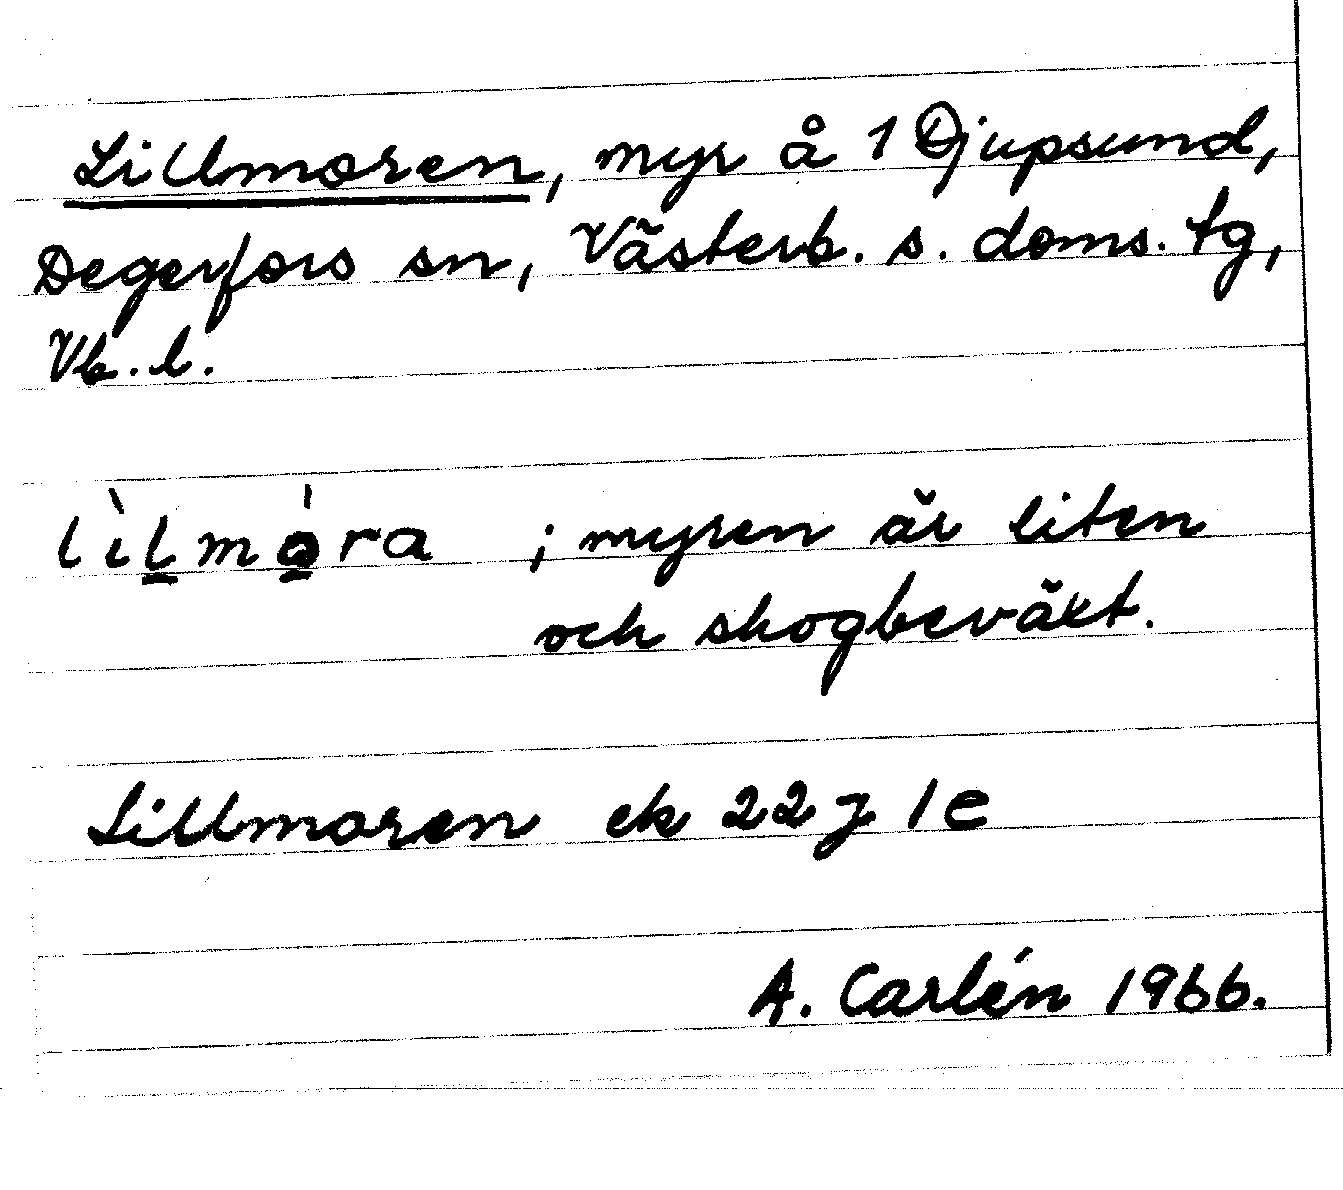 Lillmoren, myr å 1 Djupsund,
Degerfors sn, Västerb. s. doms. tg,
Vb. l.
lìl̠mo̠ra ; myren är liten
och skogbeväxt.
Lillmoren ek 22 J 1e
A. Carlén 1966.